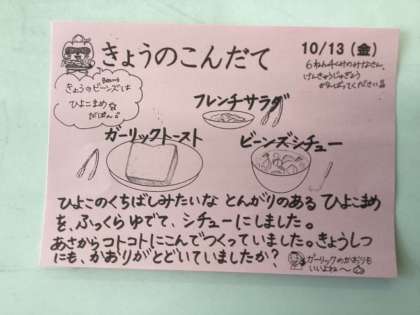 きょうのこんだて
10/13 (金)
6ねん4くみのみなさん、
けんきゅうじゅぎょう
がんばってくださいね
Beans
きょうのビーンズは
ひよこまめ
だぱん♪
フレンチサラダ
ガーリックトースト
ビーンズシチュー
ひよこのくちばしみたいな とんがりのある ひよこまめ
を、ふっくらゆでて、シチューにしました。
あさからコトコトにこんでつくっていました。きょうしつ
にも、かおりがとどいていましたか?
ガーリックのかおりも
いいよね〜